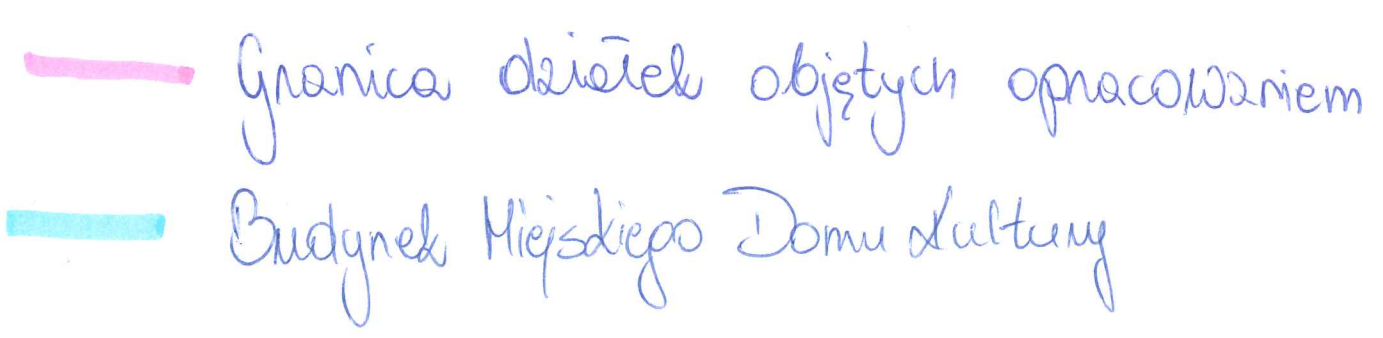 Granica działek objętych opracowaniem
Budynek Miejskiego Domu Kultury